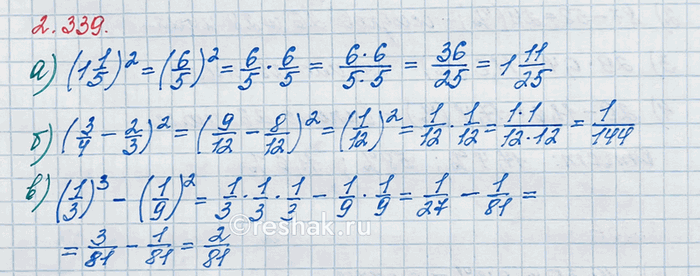 2.339.
а) (1 1/5)² = (6/5)² = 6/5 · 6/5 = 6·6/5·5 = 36/25 = 1 11/25
б) (3/4 − 2/3)² = (9/12 − 8/12)² = (1/12)² = 1/12 · 1/12 = 1·1/12·12 = 1/144
в) (1/3)³ − (1/9)² = 1/3 · 1/3 · 1/3 − 1/9 · 1/9 = 1/27 − 1/81 =
= 3/81 − 1/81 = 2/81
©reshak.ru